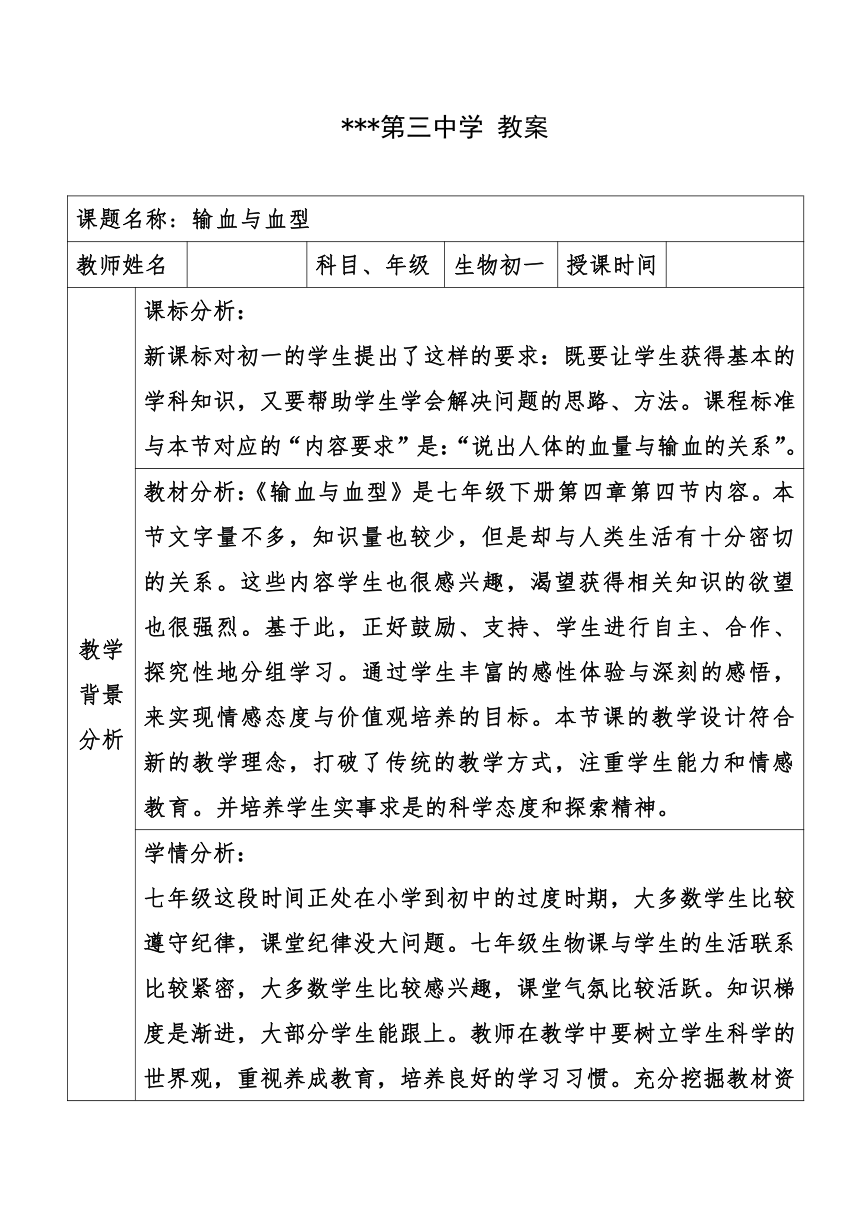 ***第三中学 教案
课题名称：输血与血型
教师姓名 科目、年级 生物初一 授课时间
教学
背景
分析
课标分析：
新课标对初一的学生提出了这样的要求：既要让学生获得基本的
学科知识，又要帮助学生学会解决问题的思路、方法。课程标准
与本节对应的“内容要求”是：“说出人体的血量与输血的关系”。
教材分析：《输血与血型》是七年级下册第四章第四节内容。本
节文字量不多，知识量也较少，但是却与人类生活有十分密切
的关系。这些内容学生也很感兴趣，渴望获得相关知识的欲望
也很强烈。基于此，正好鼓励、支持、学生进行自主、合作、
探究性地分组学习。通过学生丰富的感性体验与深刻的感悟，
来实现情感态度与价值观培养的目标。本节课的教学设计符合
新的教学理念，打破了传统的教学方式，注重学生能力和情感
教育。并培养学生实事求是的科学态度和探索精神。
学情分析：
七年级这段时间正处在小学到初中的过度时期，大多数学生比较
遵守纪律，课堂纪律没大问题。七年级生物课与学生的生活联系
比较紧密，大多数学生比较感兴趣，课堂气氛比较活跃。知识梯
度是渐进，大部分学生能跟上。教师在教学中要树立学生科学的
世界观，重视养成教育，培养良好的学习习惯。充分挖掘教材资